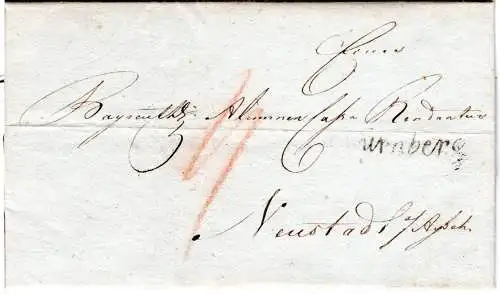 Bayreuth Alumnen Cassa Rendantur
urnberg
Neustadt a/Aysch.